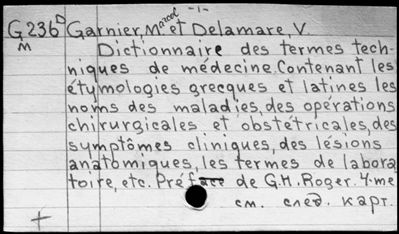 -1-
G236ᴰ Garnier, Marcel et Delamare, V.
м Dictionnaire des termes tech-
niques de médecine. Contenant les
étymologies grecques et latines les
noms des maladies, des opérations
chirurgicales et obstétricales, des
symptômes cliniques, des lésions
anatomiques, les termes de labora
toire, etc. Préface de G.H. Roger. 4-me
см. след. карт.
+